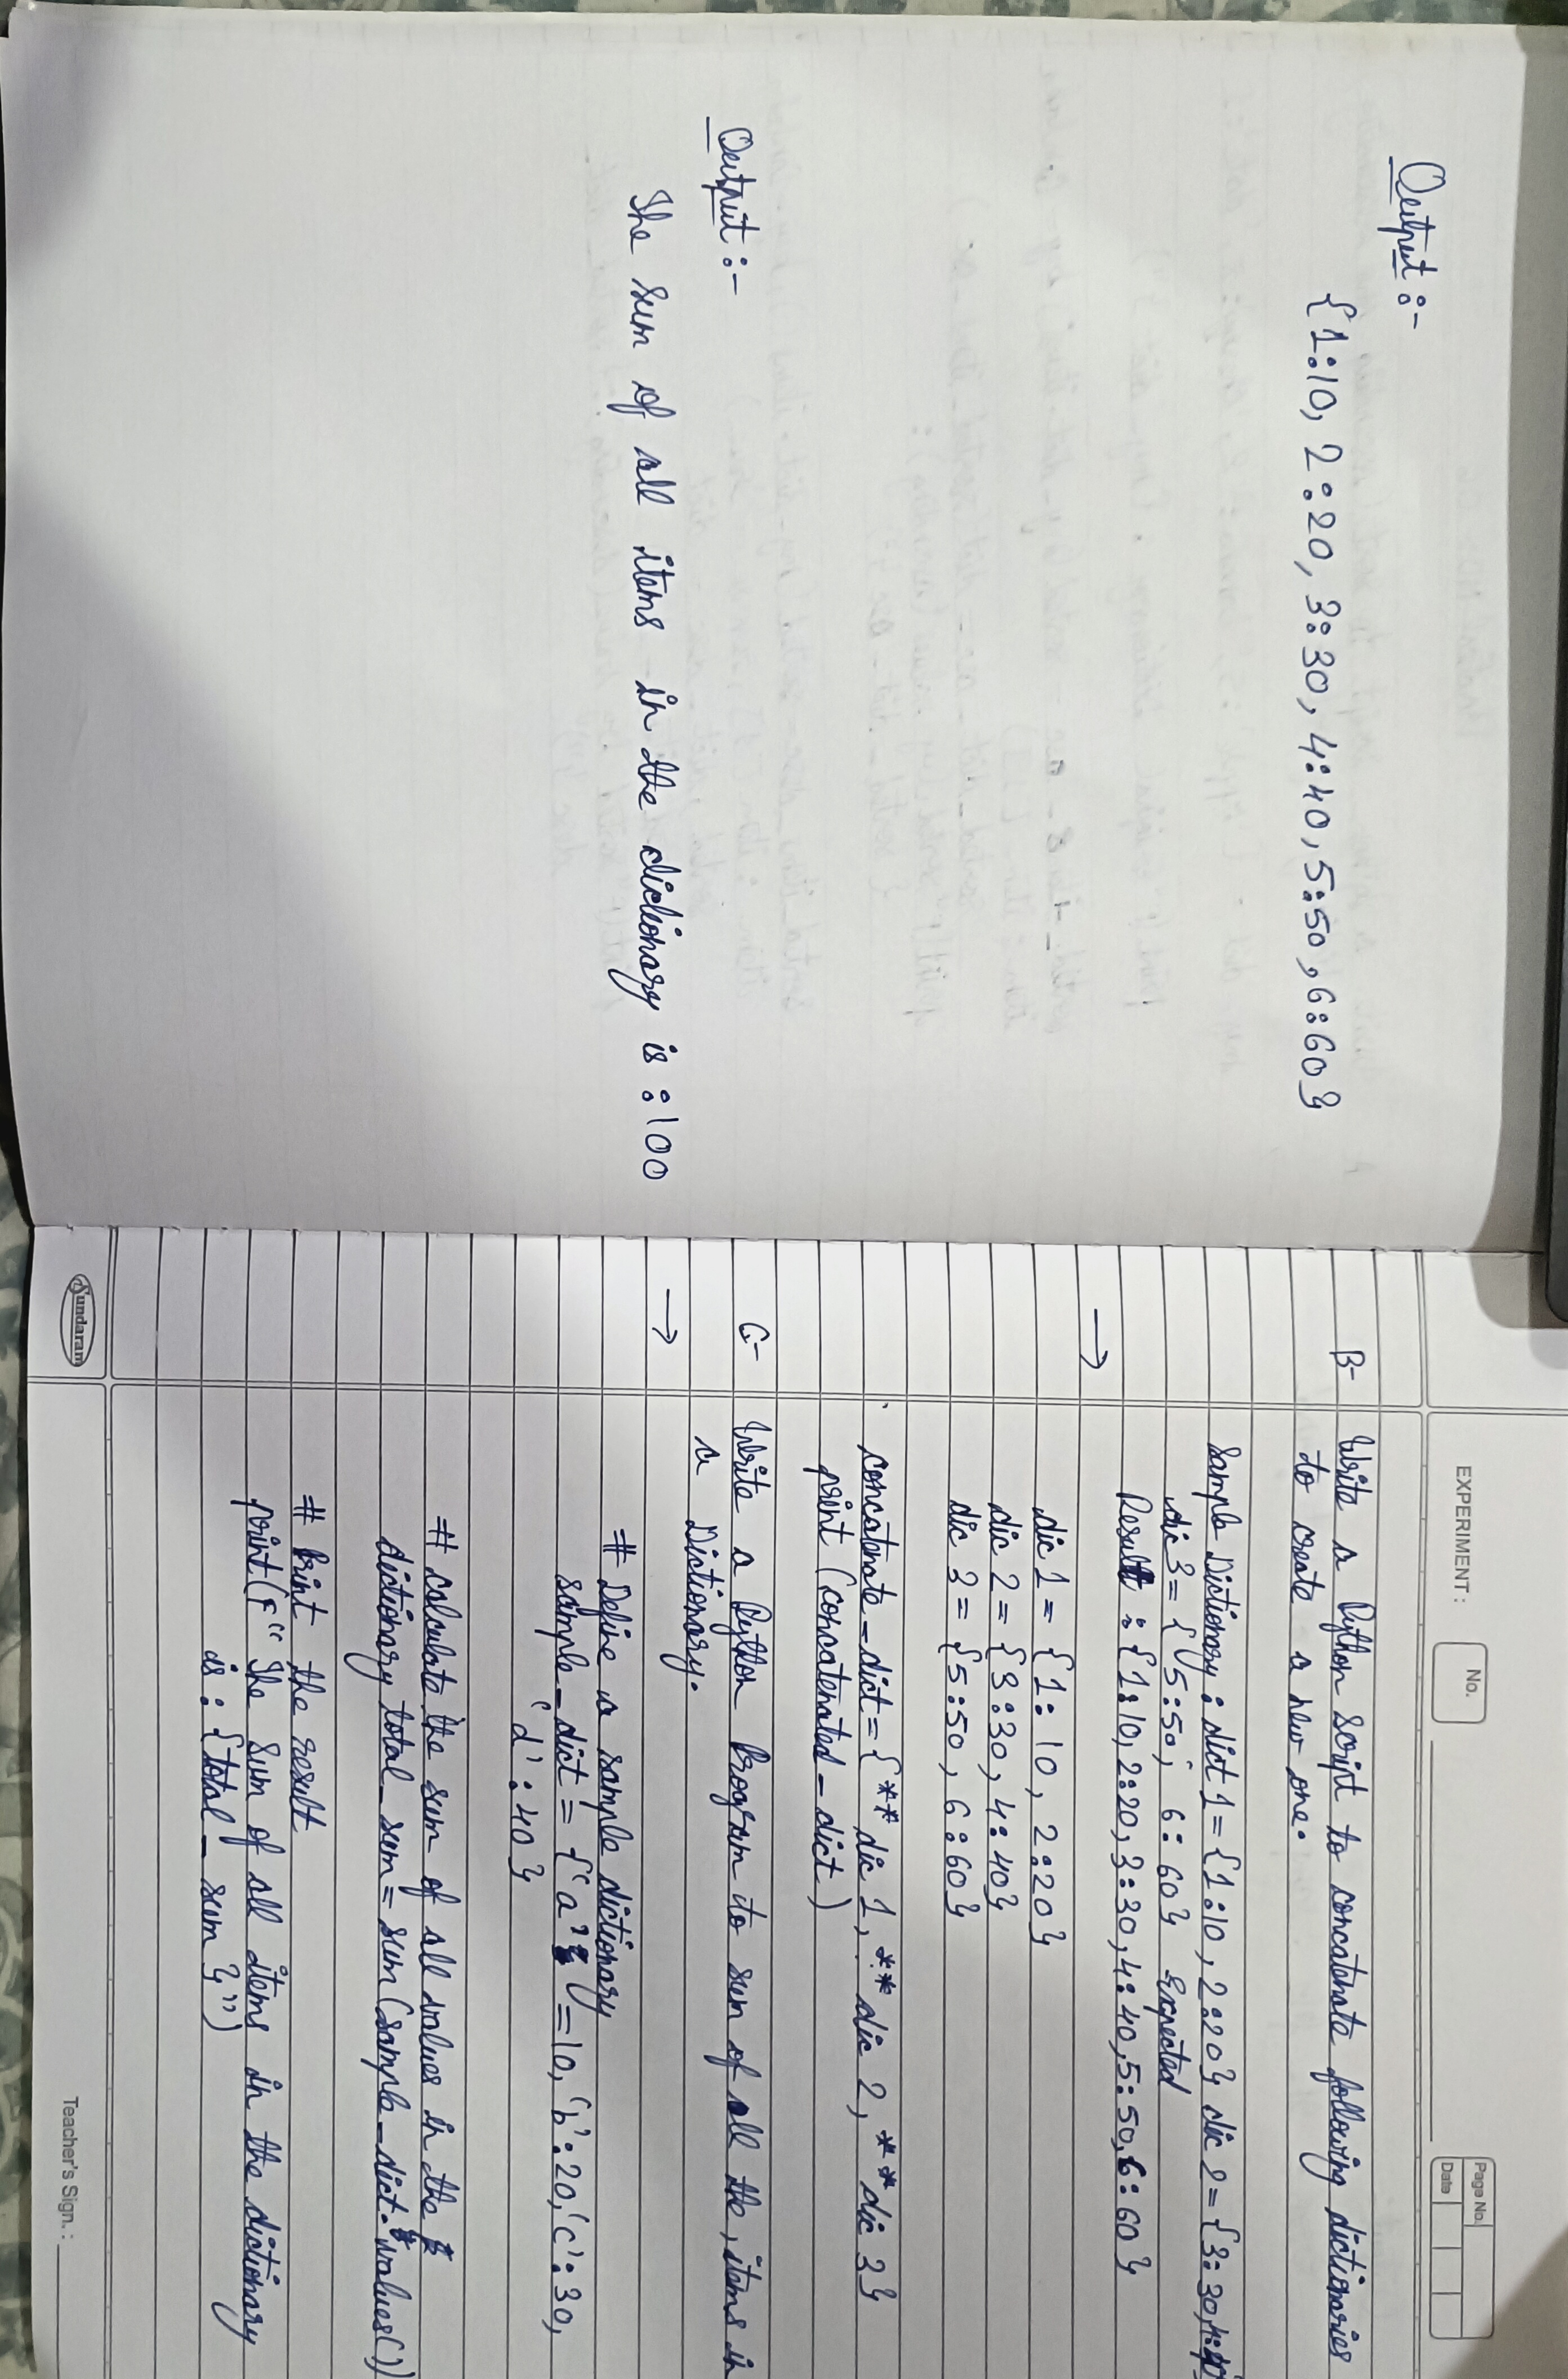 Output :-
{1:10, 2:20, 3:30, 4:40, 5:50, 6:60}
Output :-
The sum of all items in the dictionary is : 100
EXPERIMENT :
No.
Page No.
Date
B- Write a Python Script to concatenate following dictionaries
to create a new one.
Sample Dictionary : dict 1 = {1:10, 2:20} dic 2 = {3:30, 4:40}
dic 3 = { 5:50, 6:60} Expected
Result : {1:10, 2:20, 3:30, 4:40, 5:50, 6:60}
→
dic 1 = {1:10, 2:20}
dic 2 = {3:30, 4:40}
dic 3 = {5:50, 6:60}
concatenate_dict = {** dic 1, ** dic 2, ** dic 3}
print (concatenated_dict)
C- Write a Python Program to sum of all the, items in
a Dictionary.
→
# Define a sample dictionary
sample_dict = {'a' = 10, 'b':20, 'c':30,
'd':40}
# calculate the sum of all values in the
dictionary total_sum = sum (sample_dict.values())
# Print the result
print(F" The Sum of all items in the dictionary
is : {total_sum}")
Sundaram
Teacher's Sign. :